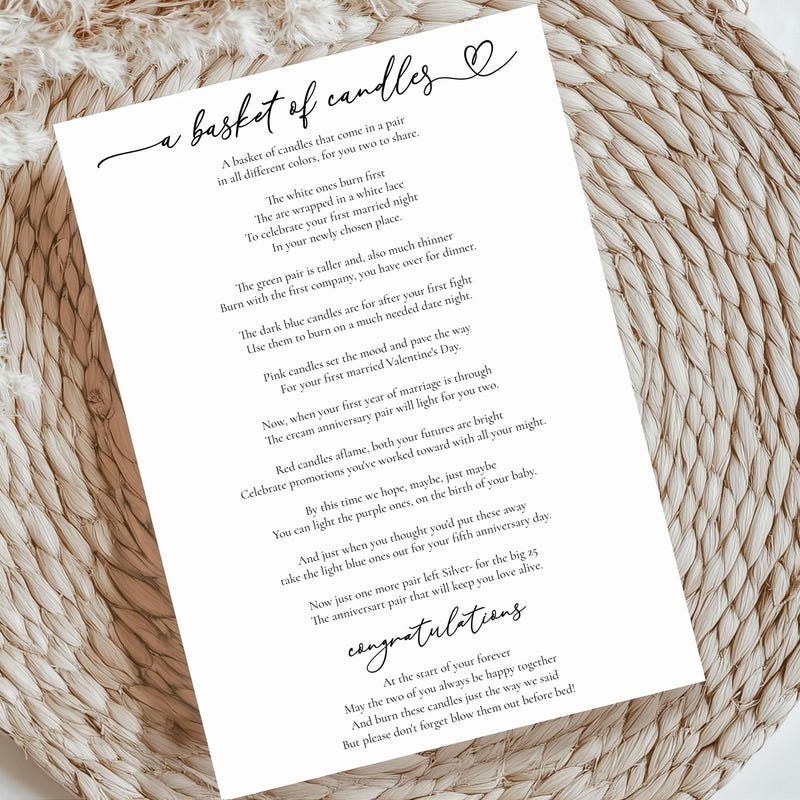 a basket of candles
A basket of candles that come in a pair
in all different colors, for you two to share.
The white ones burn first
The are wrapped in a white lace
To celebrate your first married night
In your newly chosen place.
The green pair is taller and, also much thinner
Burn with the first company, you have over for dinner.
The dark blue candles are for after your first fight
Use them to burn on a much needed date night.
Pink candles set the mood and pave the way
For your first married Valentine's Day.
Now, when your first year of marriage is through
The cream anniversary pair will light for you two.
Red candles aflame, both your futures are bright
Celebrate promotions you've worked toward with all your might.
By this time we hope, maybe, just maybe
You can light the purple ones, on the birth of your baby.
And just when you thought you'd put these away
take the light blue ones out for your fifth anniversary day.
Now just one more pair left Silver- for the big 25
The anniversart pair that will keep you love alive.
congratulations
At the start of your forever
May the two of you always be happy together
And burn these candles just the way we said
But please don't forget blow them out before bed!